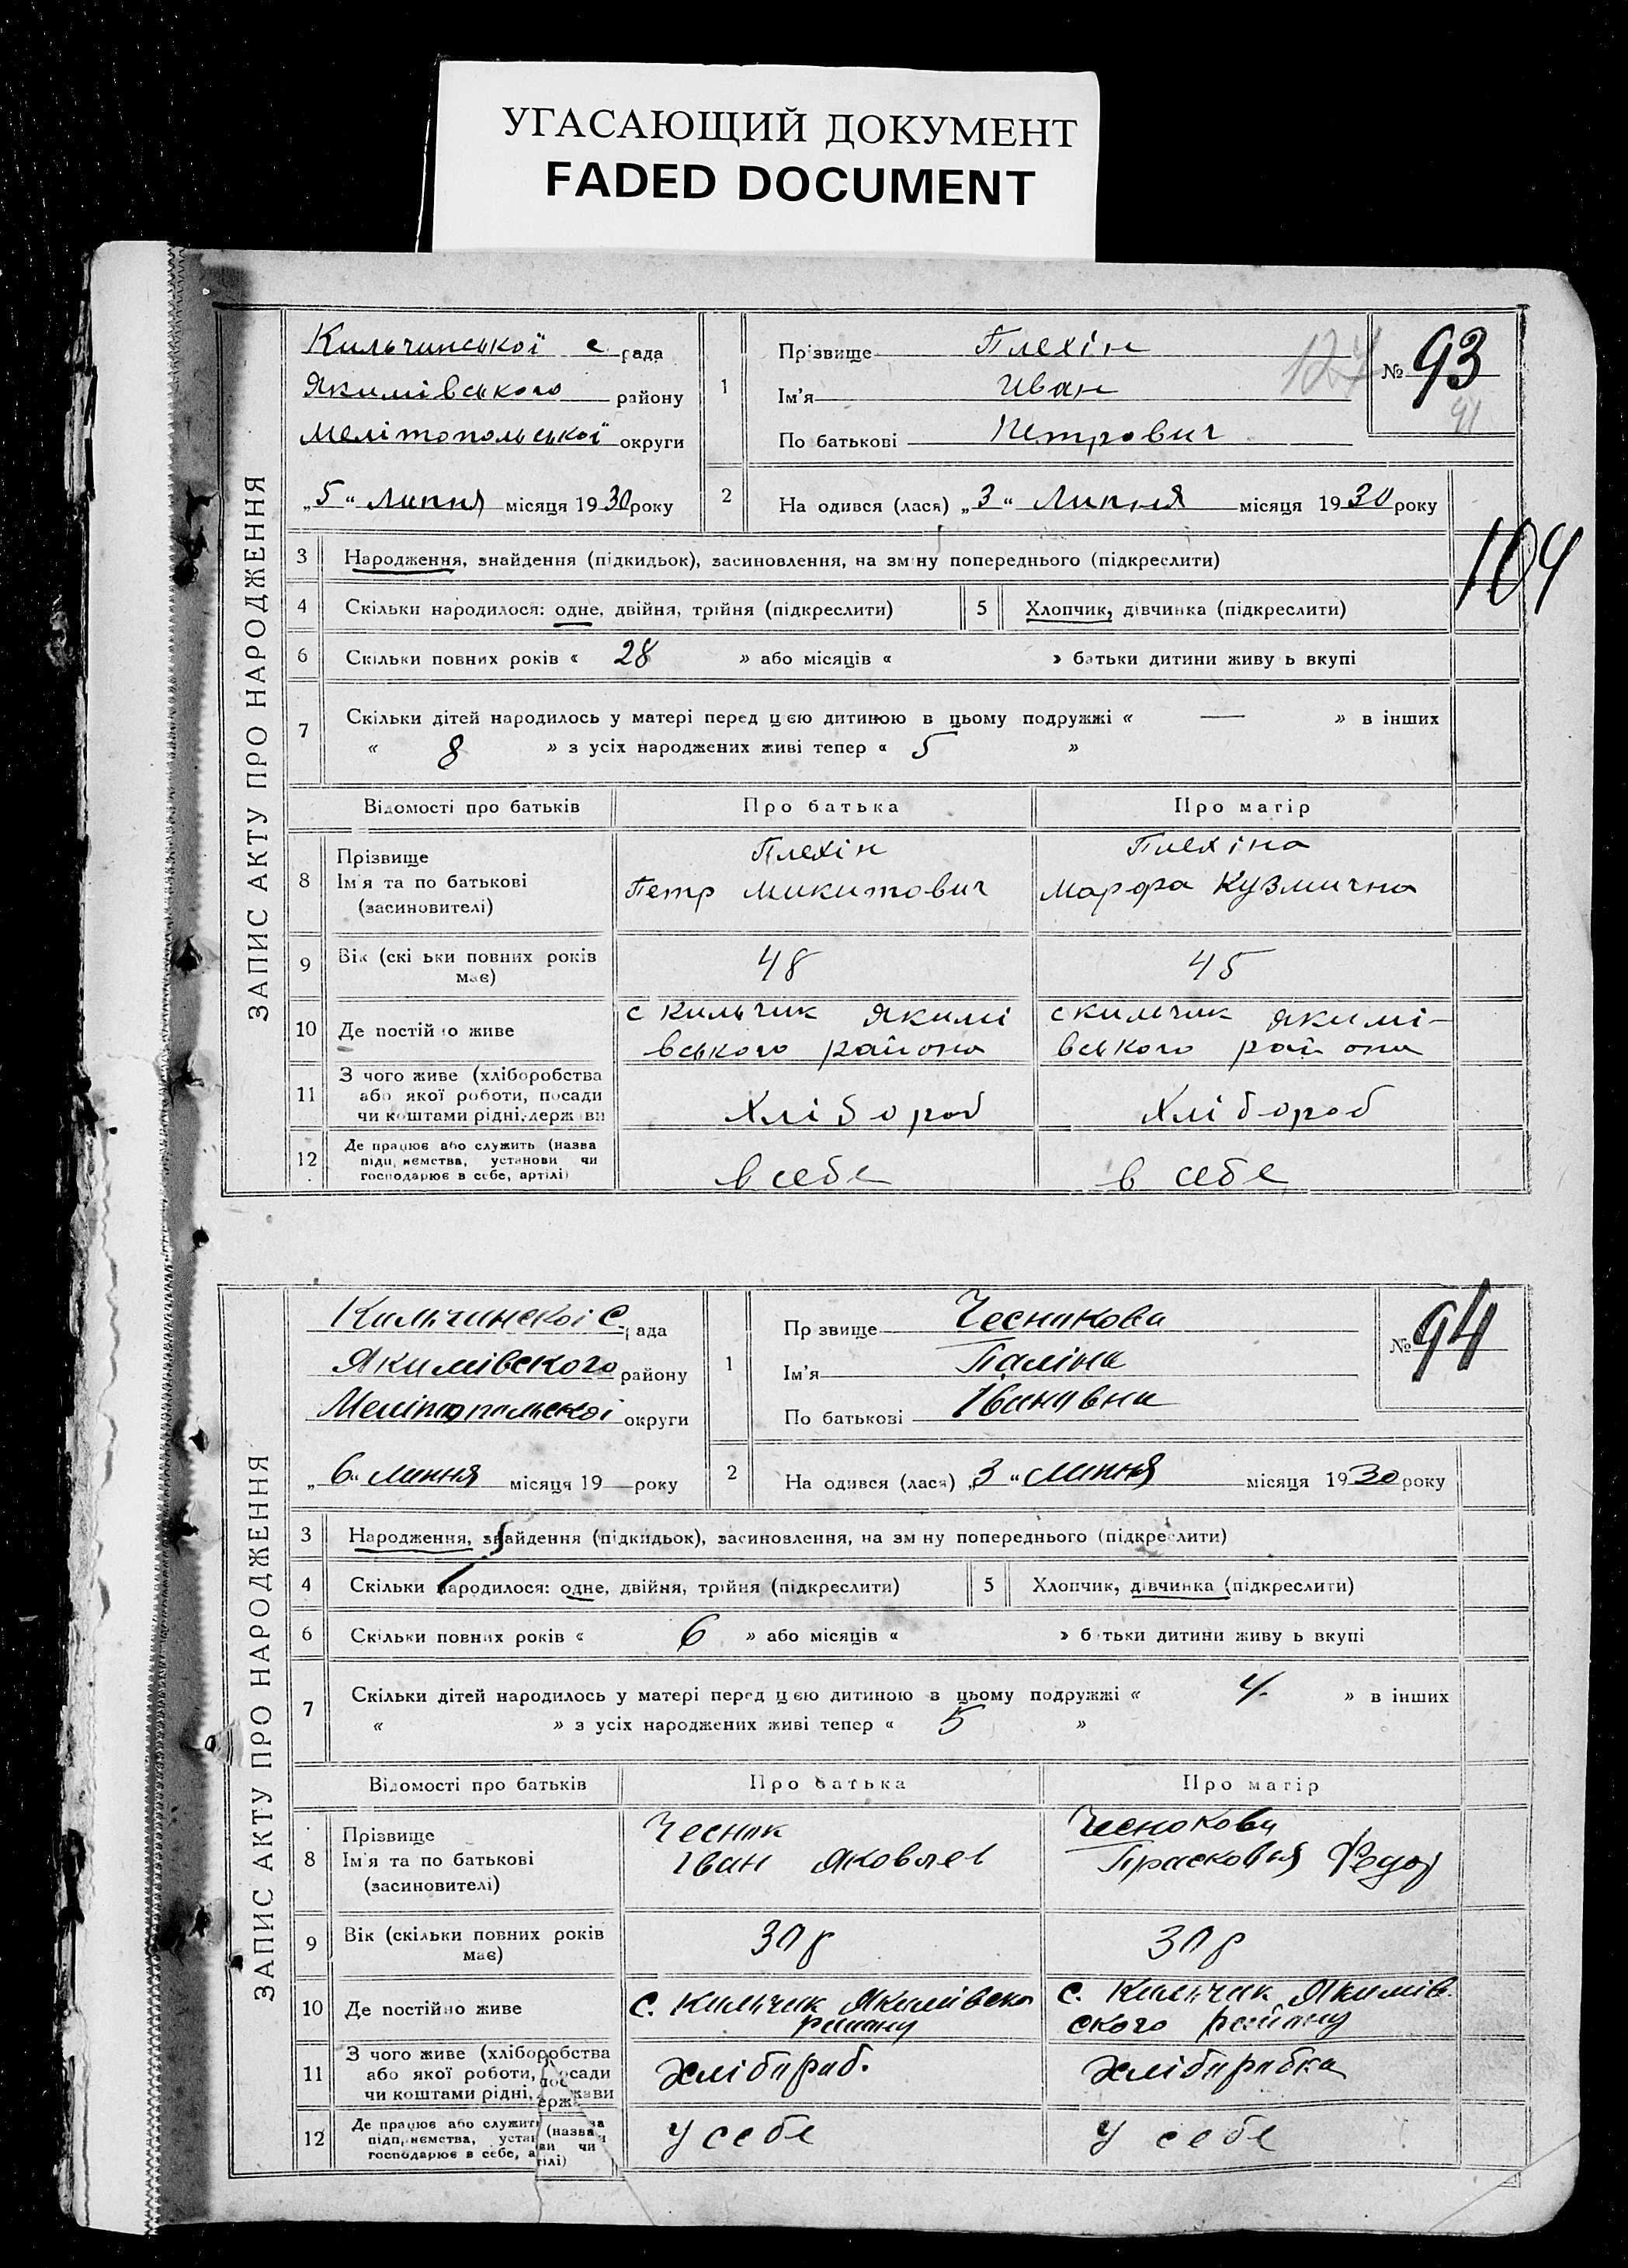 УГАСАЮЩИЙ ДОКУМЕНТ
FADED DOCUMENT
ЗАПИС АКТУ ПРО НАРОДЖЕННЯ
Кильчинської с рада
Якимівського району
Мелітопольської округи
„5“ Липня місяця 1930 року
1 Прізвище Плехін
Ім'я Иван
По батькові Петрович
124
№ 93
91
2 На одився (лася) „3“ Липня місяця 1930 року
104
3 Народження, знайдення (підкидьок), засиновлення, на зм ну попереднього (підкреслити)
4 Скільки народилося: одне, двійня, трійня (підкреслити) 5 Хлопчик, дівчинка (підкреслити)
6 Скільки повних років « 28 » або місяців « » батьки дитини живу ь вкупі
7 Скільки дітей народилось у матері перед цією дитиною в цьому подружжі « — » в інших
« 8 » з усіх народжених живі тепер « 5 »
Відомості про батьків Про батька Про матір
8 Прізвище Плехін Плехіна
Ім'я та по батькові Петр Микитович Марфа Кузмична
(засиновителі)
9 Вік (скі ьки повних років має) 48 45
10 Де постійно живе с Кильчик Якимі с Кильчик Якимі-
вського района вського района
11 З чого живе (хліборобства
або якої роботи, посади
чи коштами рідні, держави Хлібороб Хлібороб
12 Де працює або служить (назва
підприємства, установи чи
господарює в себе, артілі) в себе в себе
ЗАПИС АКТУ ПРО НАРОДЖЕННЯ
Кильчинскоі С. рада
Якимівского району
Меліпопольскоі округи
„6“ липня місяця 19 — року
1 Пр звище Чеснокова
Ім'я Паліна
По батькові Івановна
№ 94
2 На одився (лася) „3“ липня місяця 1930 року
3 Народження, знайдення (підкидьок), засиновлення, на зм ну попереднього (підкреслити)
4 Скільки народилося: одне, двійня, трійня (підкреслити) 5 Хлопчик, дівчинка (підкреслити)
6 Скільки повних років « 6 » або місяців « » б тьки дитини живу ь вкупі
7 Скільки дітей народилось у матері перед цією дитиною в цьому подружжі « 4. » в інших
« » з усіх народжених живі тепер « 5 »
Відомості про батьків Про батька Про матір
8 Прізвище Чеснок Чеснокова
Ім'я та по батькові Іван Яковлев Прасковья Федор
(засиновителі)
9 Вік (скільки повних років має) 30 р 30 р
10 Де постійно живе с. Кильчик Якимівско с. Кильчик Якимів
району ского району
11 З чого живе (хліборобства
або якої роботи, посади
чи коштами рідні, держави хлібороб. хліборобка
12 Де працює або служить (назва
підприємства, установи чи
господарює в себе, артілі) у себе у себе